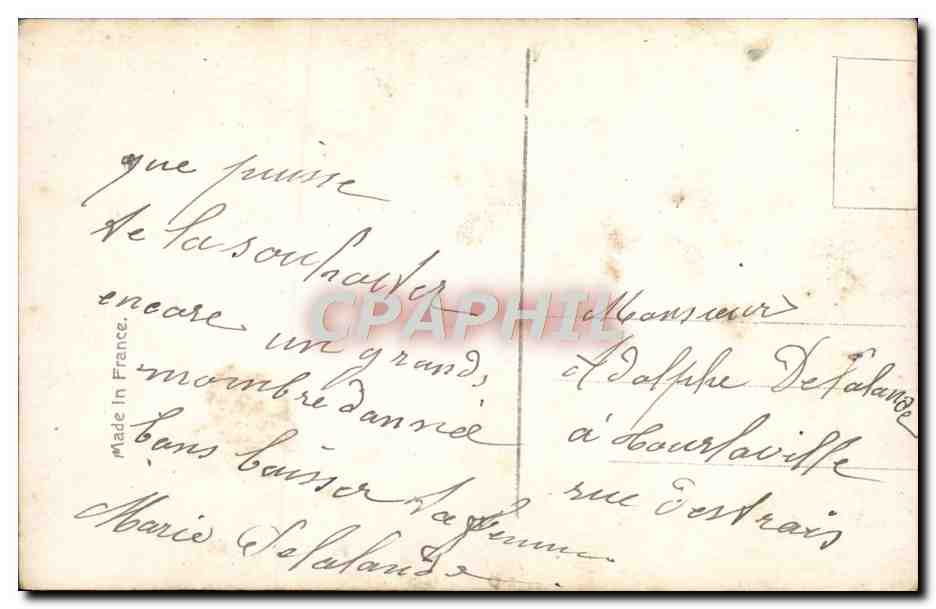 que puisse
te la souhaiter
encore un grand,
nombre danné
bons baisser ta femme
Marie Delalande
Made In France.
CPAPHIL
Monsieur
Adolphe Delalande
à Tourlaville
rue